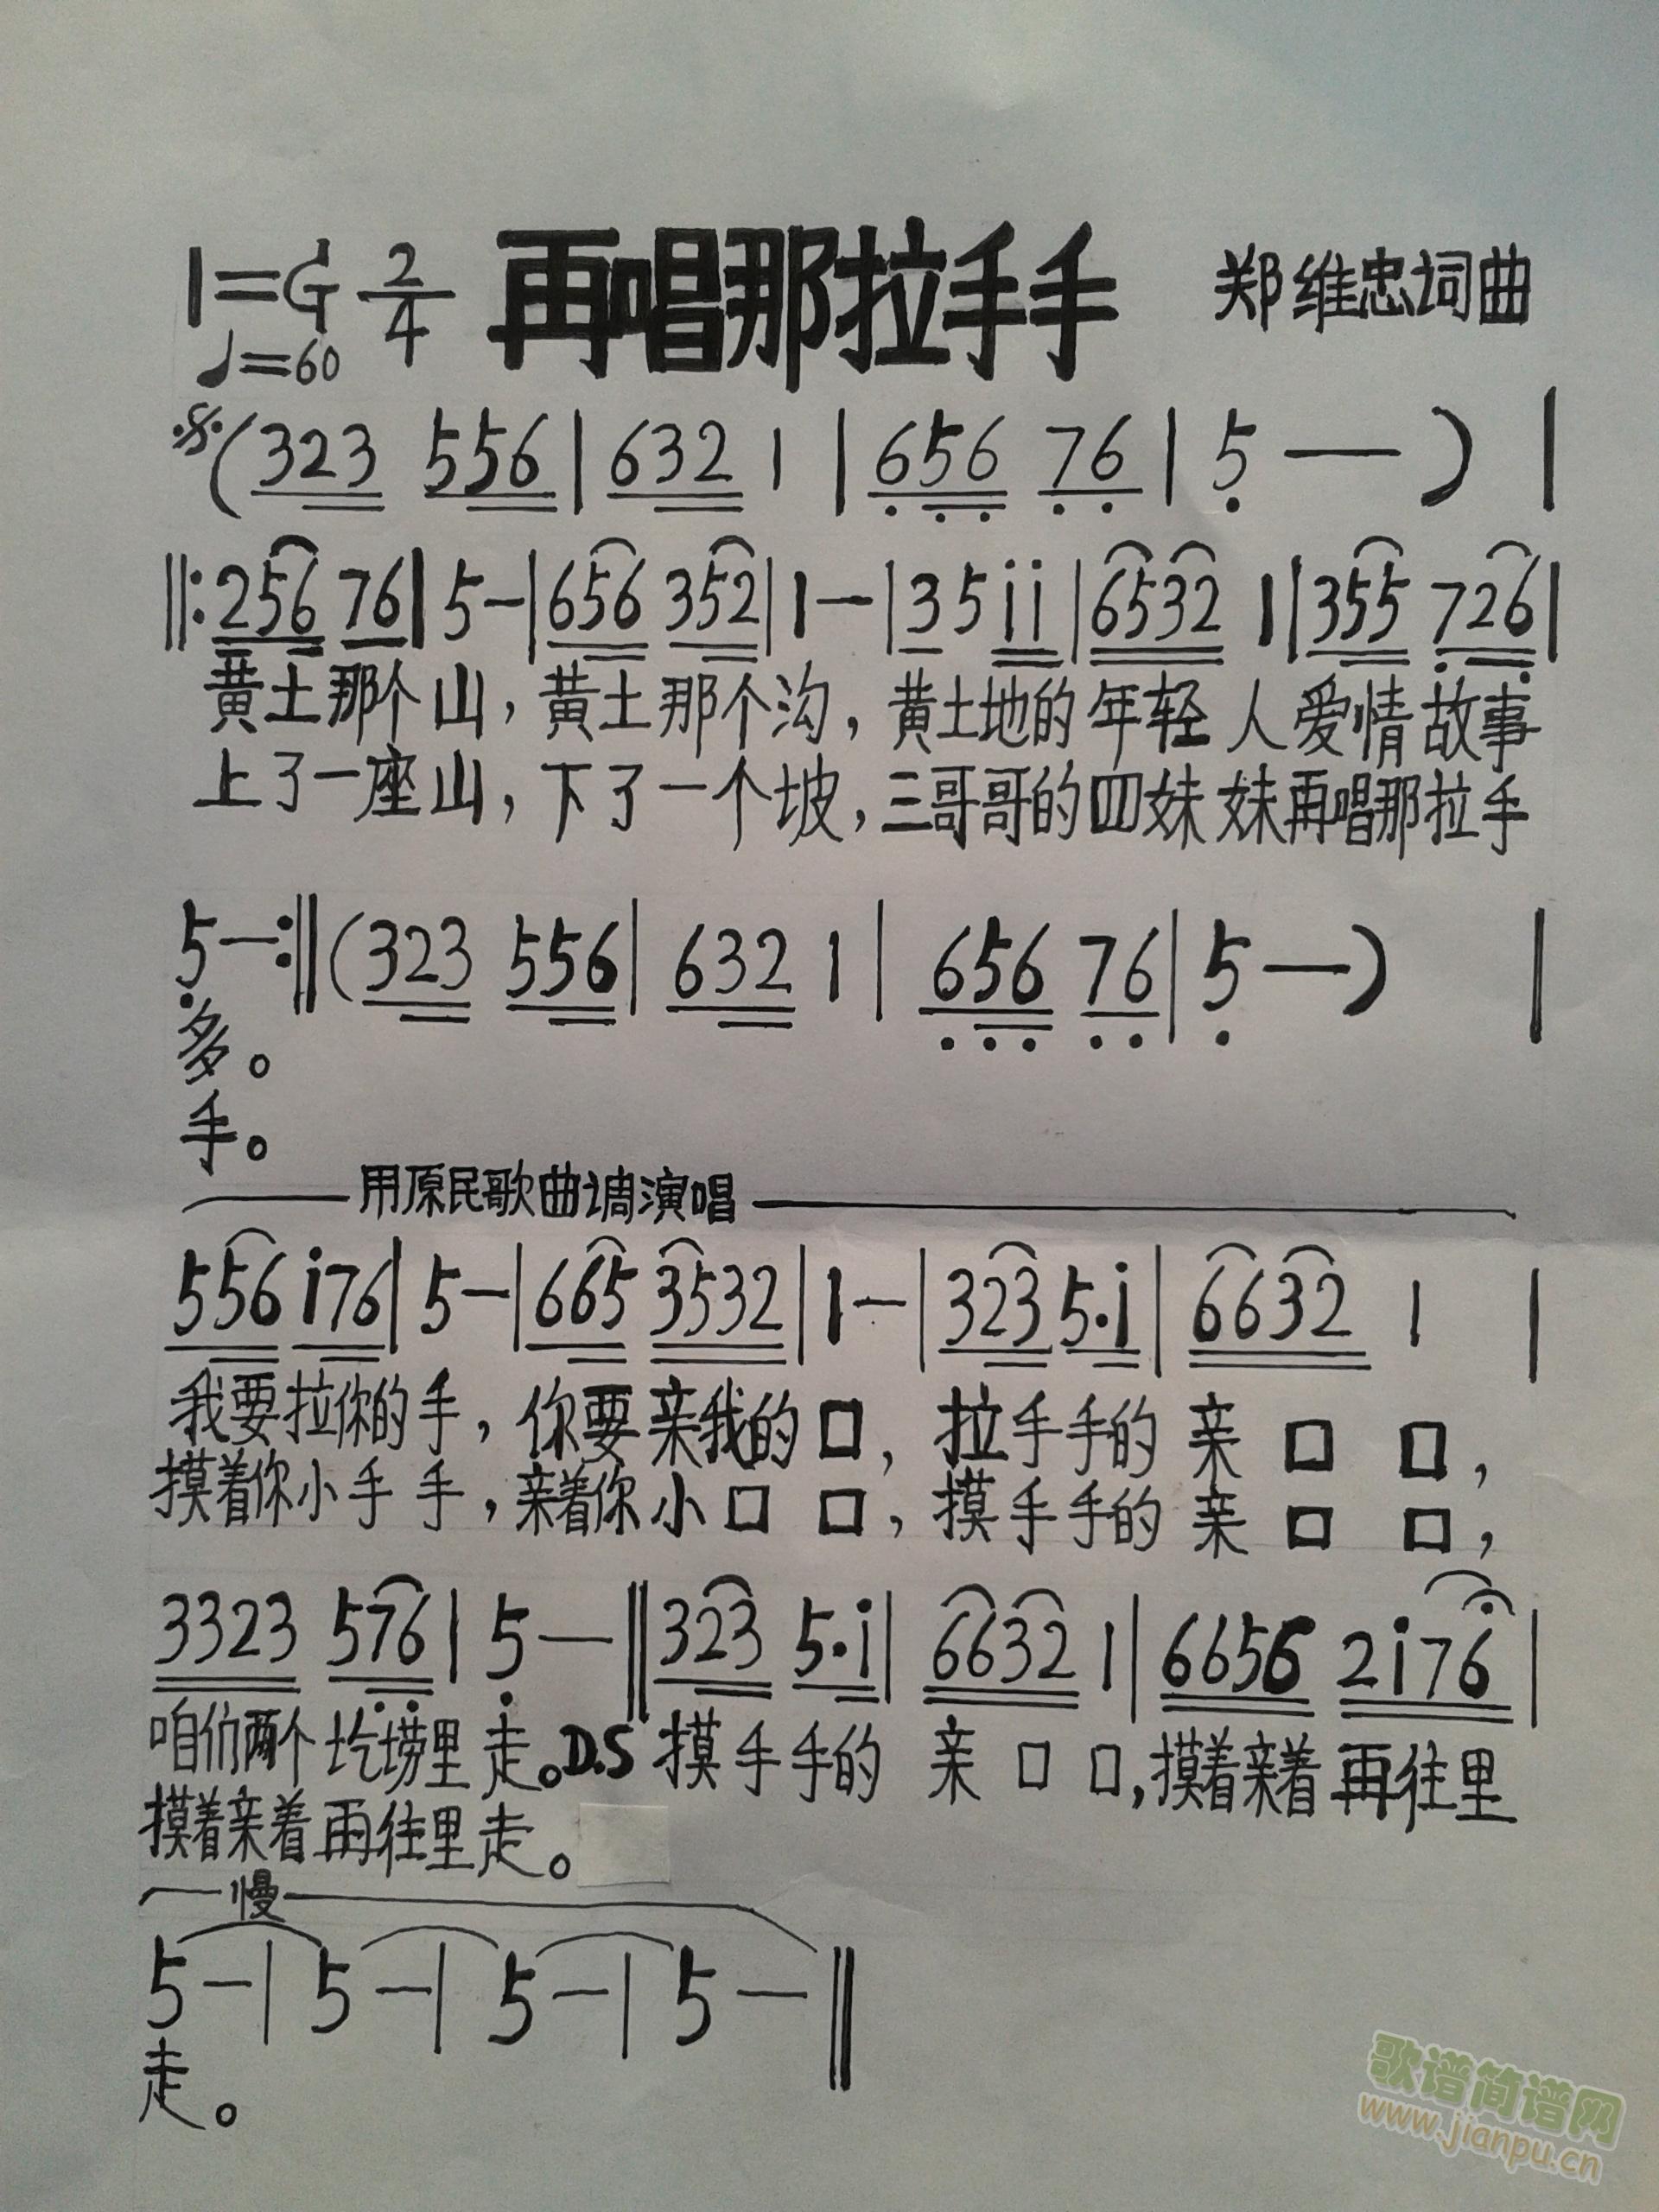 1=G 2/4 再唱那拉手手 郑维忠词曲
♩=60
𝄋(323 556|632 1|6̣5̣6̣ 7̣6̣|5̣ —)|
‖:256 76|5 —|656 352|1 —|35 i̇i̇|6532 1|355 7̣26̣|
黄土那个山，黄土那个沟，黄土地的年轻人爱情故事
上了一座山，下了一个坡，三哥哥的四妹妹再唱那拉手
5̣ —:‖(323 556|632 1|6̣5̣6̣ 7̣6̣|5̣ —)|
多。
手。
用原民歌曲调演唱
556 i76|5 —|665 3532|1 —|323 5·i|6632 1|
我要拉你的手，你要亲我的口，拉手手的亲口口，
摸着你小手手，亲着你小口口，摸手手的亲口口，
3323 57̣6̣|5̣ —‖323 5·i|6632 1|6656 2i76|
咱们两个圪捞里走。D.S 摸手手的亲口口，摸着亲着再往里
摸着亲着再往里走。
慢
5 —|5 —|5 —|5 —‖
走。
歌谱简谱网
www.jianpu.cn